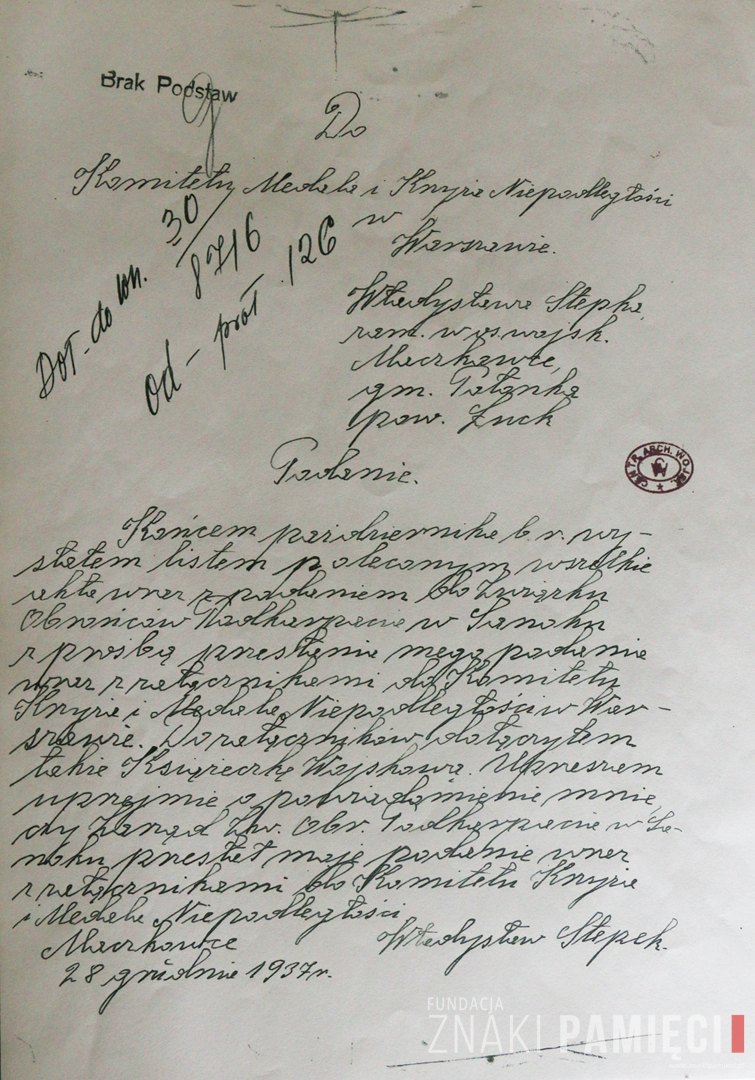 Brak Podstaw
Do
Komitetu Medala i Krzyża Niepodległości
w
Warszawie.
Dot. do wn. 30
8716
od - prot. 126
Władysława Stepka,
zam. w os. wojsk.
Maczkowce,
gm. Połonka
pow. Łuck
CENTR. ARCH. WOJSK.
Podanie.
Końcem października b. r. wy-
słałem listem poleconym wszelkie
akta wraz z podaniem do Związku
Obrońców Podkarpacia w Sanoku
z prośbą przesłania mego podania
wraz z załącznikami do Komitetu
Krzyża i Medala Niepodległości w War-
szawie. Do załączników dołączyłem
także Książeczkę Wojskową. Upraszam
uprzejmie o powiadomienie mnie,
czy Zarząd Zw. Obr. Podkarpacia w Sa-
noku przesłał moje podanie wraz
z załącznikami do Komitetu Krzyża
i Medala Niepodległości
Maczkowce Władysław Stepek.
28 grudnia 1937 r.
FUNDACJA
ZNAKI PAMIĘCI